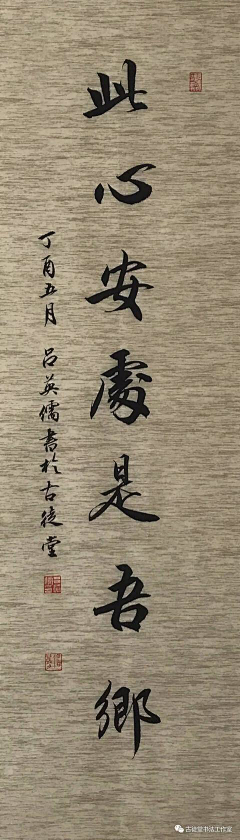 此心安處是吾鄉
丁酉五月 吕英儒書於古徒堂
古徒堂书法工作室